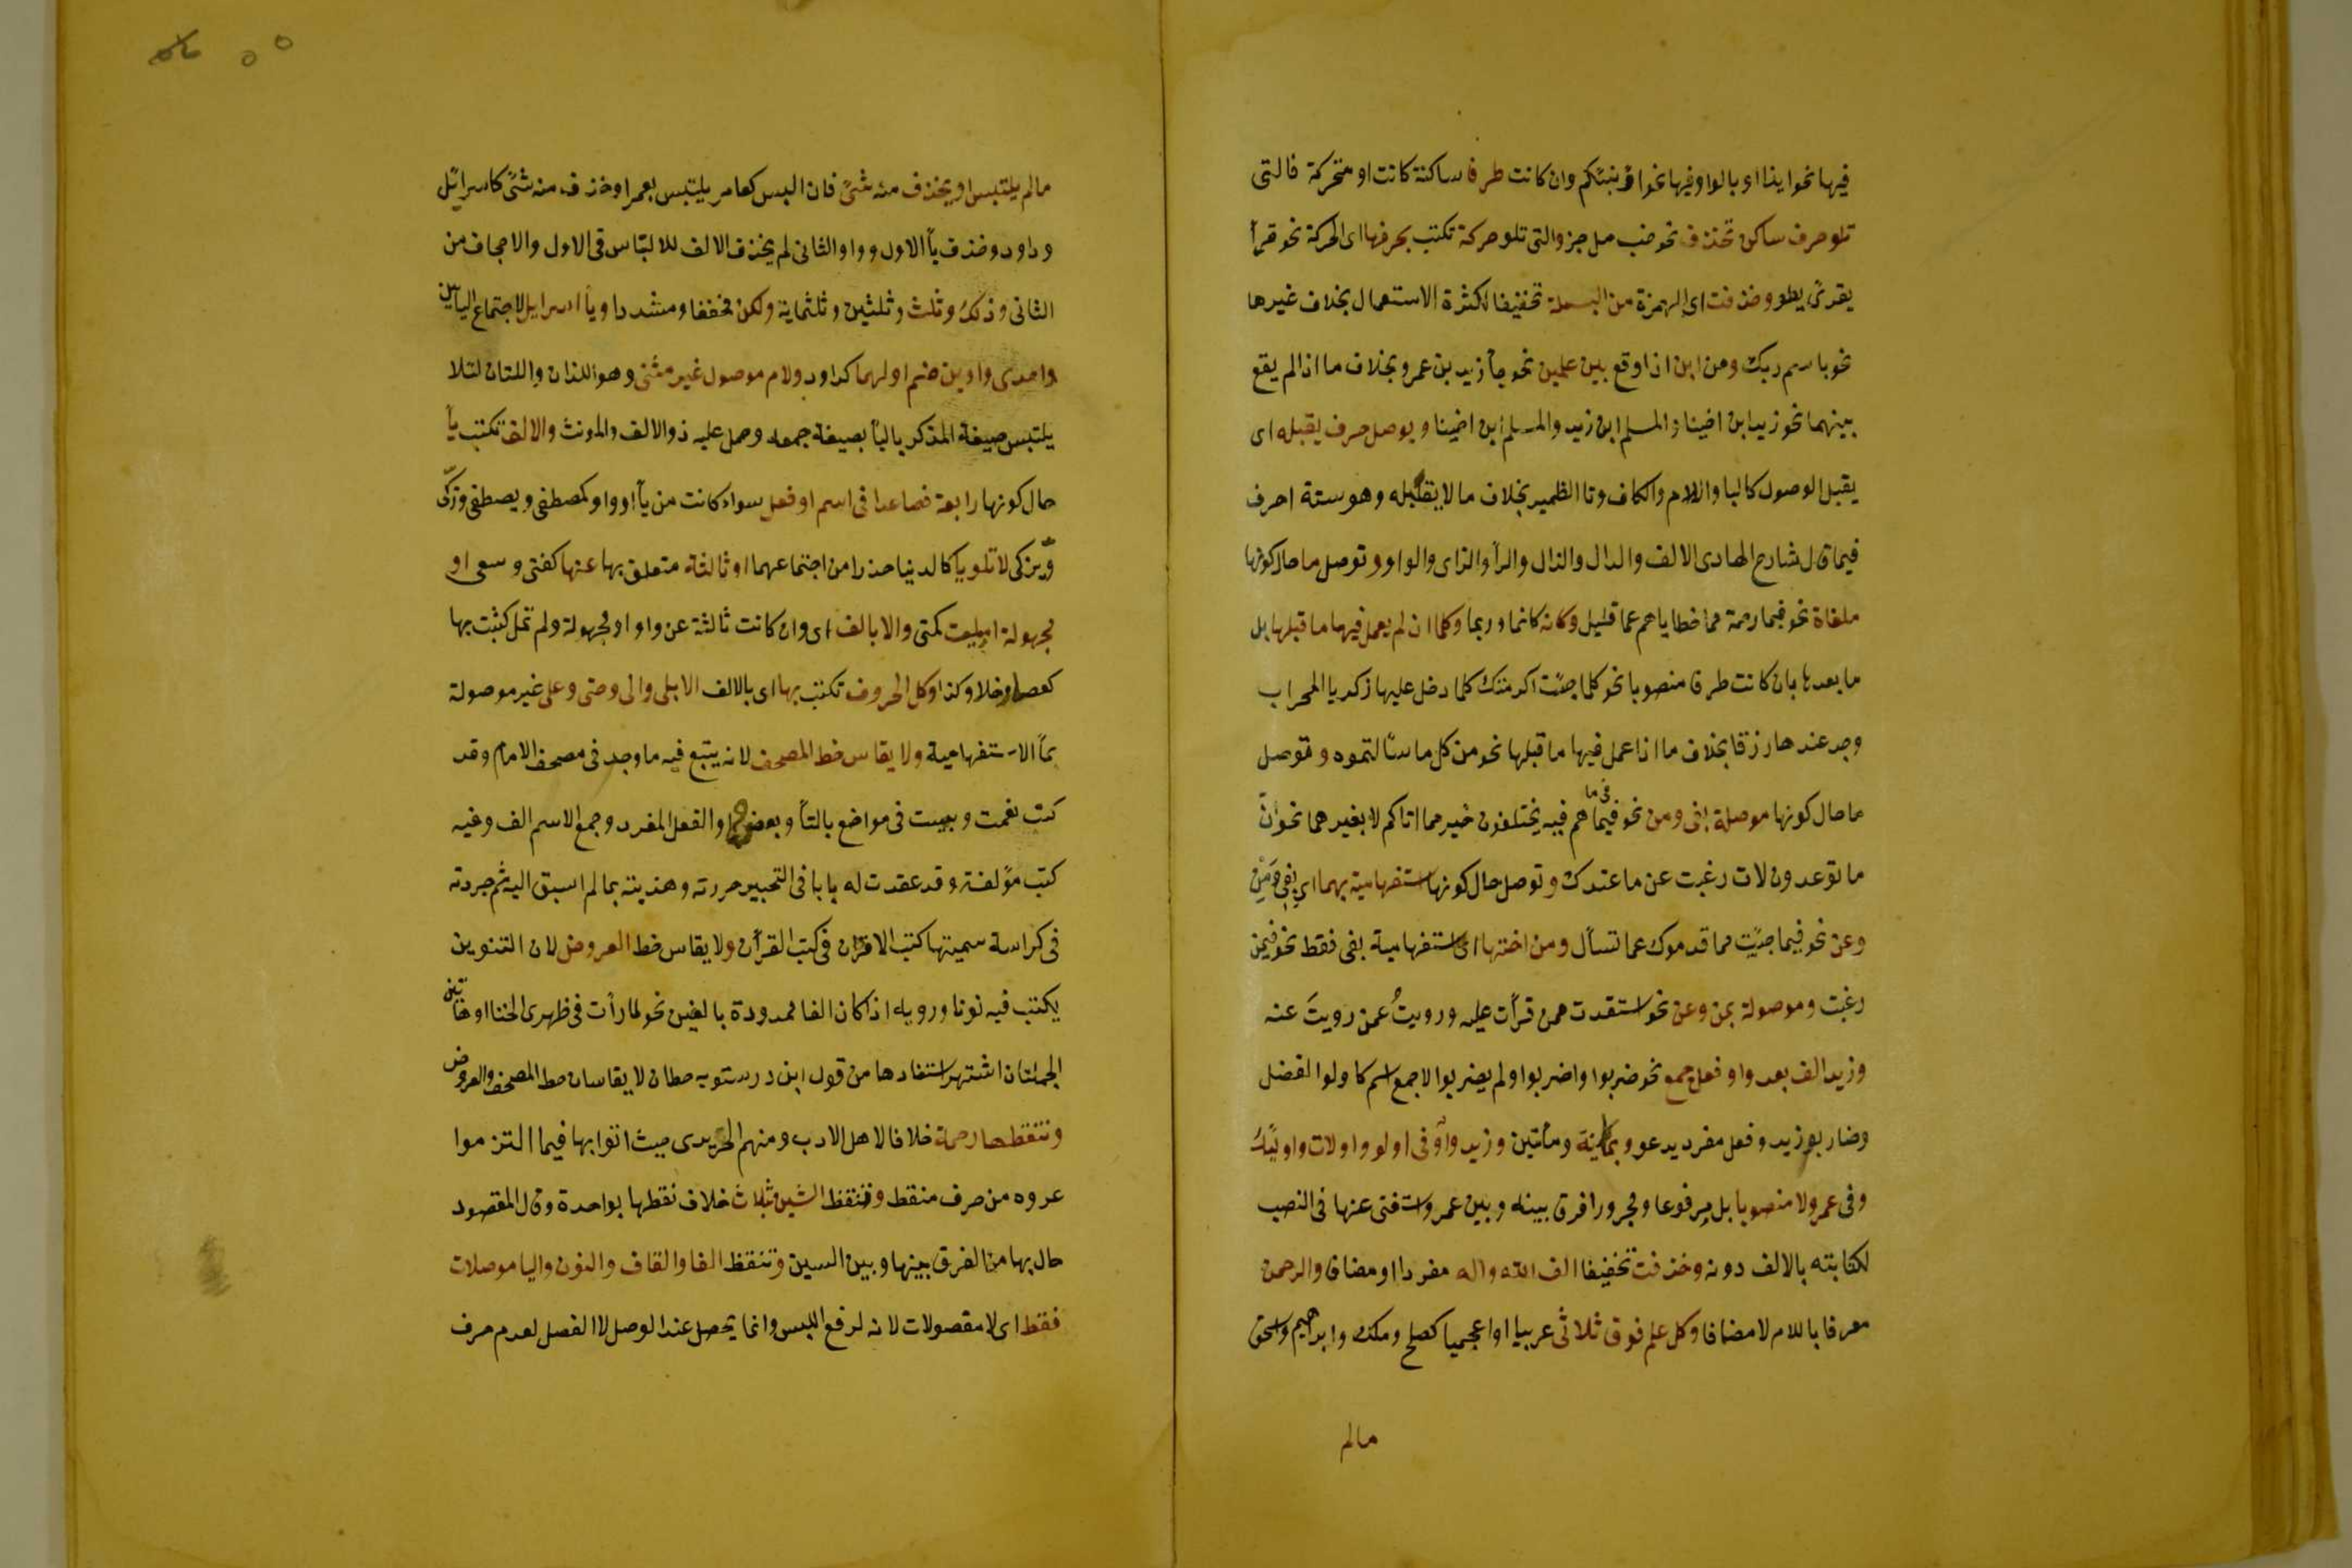 فيها نحو ايذا او بالواو فيها نحو اؤنبئكم وان كانت طرفا ساكنة كانت او متحركة فالتى
تلو حرف ساكن تحذف نحو خب مل جز والتى تلو حركة تكتب بحرفها اى الحركة نحو قرأ
يقرئ يطو وحذفت اى الهمزة من البسملة تخفيفا لكثرة الاستعمال بخلاف غيرها
نحو باسم ربك ومن ابن اذا وقع بين علمين نحو جأ زيد بن عمرو بخلاف ما اذا لم يقع
بينهما نحو زيد ابن اخينا والمسلم ابن زيد والمسلم ابن اخينا ويوصل حرف يقبله اى
يقبل الوصول كالبا واللام والكاف وتا الظمير بخلاف ما لا يقبله وهو ستة احرف
فيما قال شارح الهادى الالف والدال والذال والرأ والزاى والواو وتوصل ما حال كونها
ملغاة نحو فيما رحمة مما خطاياهم عما قليل وكانه كانما وربما وكلما ان لم يعمل فيها ما قبلها بل
ما بعدها بان كانت ظرفا منصوبا نحو كلما جئت اكرمتك كلما دخل عليها زكريا المحراب
وجد عندها رزقا بخلاف ما اذا عمل فيها ما قبلها نحو من كل ما سئالتموه وتوصل
ما حال كونها موصلة بفى ومن نحو فيما فى ما هم فيه يختلفون خير مما اتاكم لا بغيرهما نحو ان
ما توعدون لات رغبت عن ما عندك وتوصل حال كونها استفهامية بهما اى بفى ومن
وعن نحو فيما جئت مما قدموك عما تسأل ومن اختها اى استفهامية بفى فقط نحو فيمن
رغبت وموصولة بمن وعن نحو استقدت ممن قرأت عليه ورويتُ عمن رويتَ عنه
وزيد الف بعد واو فعل جمع نحو ضربوا واضربوا ولم يضربوا لا جمع اسم كاولوا الفضل
وضاربو زيد وفعل مفرد يدعو وبمائة ومأتين وزيد واو فى اولو واولات واولئك
وفى عمرو لا منصوبا بل مرفوعا ومجرورا فرق بينه وبين عمر واستغنى عنها فى النصب
لكتابته بالالف دونه وحذفت تخفيفا الف الله واله مفردا او مضافا والرحمن
معرفا باللام لا مضافا وكل علم فوق ثلاثى عربيا او اعجميا كصلح وملك وابرهيم واسحق
مالم
مالم يلتبس او يحذف منه شئ فان البس كعامر يلتبس بعمر او حذف منه شئ كاسرائل
وداود وحذف يأ الاول وواو الثانى لم يحذف الالف للالتباس فى الاول والاجحاف من
الثانى وذلك وثلث وثلثين وثلثماية ولكن مخففا ومشددا ويأ اسرايل لاجتماع اليأين
واحدى واوين ضم اولهما كداود ولام موصول غير مثنى وهو اللذان واللتان لئلا
يلتبس صيغة المذكر باليأ بصيغة جمعه وحمل عليه ذو الالف والمونث والالف تكتب يأ
حال كونها رابعة فصاعدا فى اسم او فعل سواء كانت من يأ او واو كمصطفى ويصطفى وزكى
ويزكى لا تلو يا كالدنيا حذرا من اجتماعهما او ثالثة متعلق بها عنها كفتى وسعى او
مجهولة اميلت كمتى والا بالف اى وان كانت ثالثة عن واو او مجهولة ولم تمل كتبت بها
كعصا وخلا وكذا وكل الحروف تكتب بها اى بالالف الا بلى والى وحتى وعلى غير موصولة
بمأ الاستفهامية ولا يقاس خط المصحف لانه يتبع فيه ما وجد فى مصحف الامام وقد
كتب نعمت وبست فى مواضع بالتأ وبعضها والفعل المفرد وجمع الاسم الف وغيه
كتب مؤلفة وقد عقدت له بابا فى التحبير حررته وهذبته بما لم اسبق اليه ثم جردته
فى كراسة سميتها كتب الاقران فى كتب القرأن ولا يقاس خط العروض لان التنوين
يكتب فيه نونا ورويه اذا كان الفا ممدودة بالفين نحو لما رأت فى ظهرى الحناا وهاتين
الجملتان اشتهر استفادها من قول ابن درستويه خطان لا يقاسان خط المصحف والعروض
وتنقط ها رحمة خلافا لاهل الادب ومنهم الحريرى حيث اتوا بها فيما التزموا
عروه من حرف منقط وتنقظ الشين بثلاث خلاف نقطها بواحدة وقال المقصود
حال بها من الفرق بينها وبين السين وتنقظ الفا والقاف والنون واليا موصلات
فقط اى لا مفصولات لانه لرفع اللبس وانما يحصل عند الوصل لا الفصل لعدم حرف